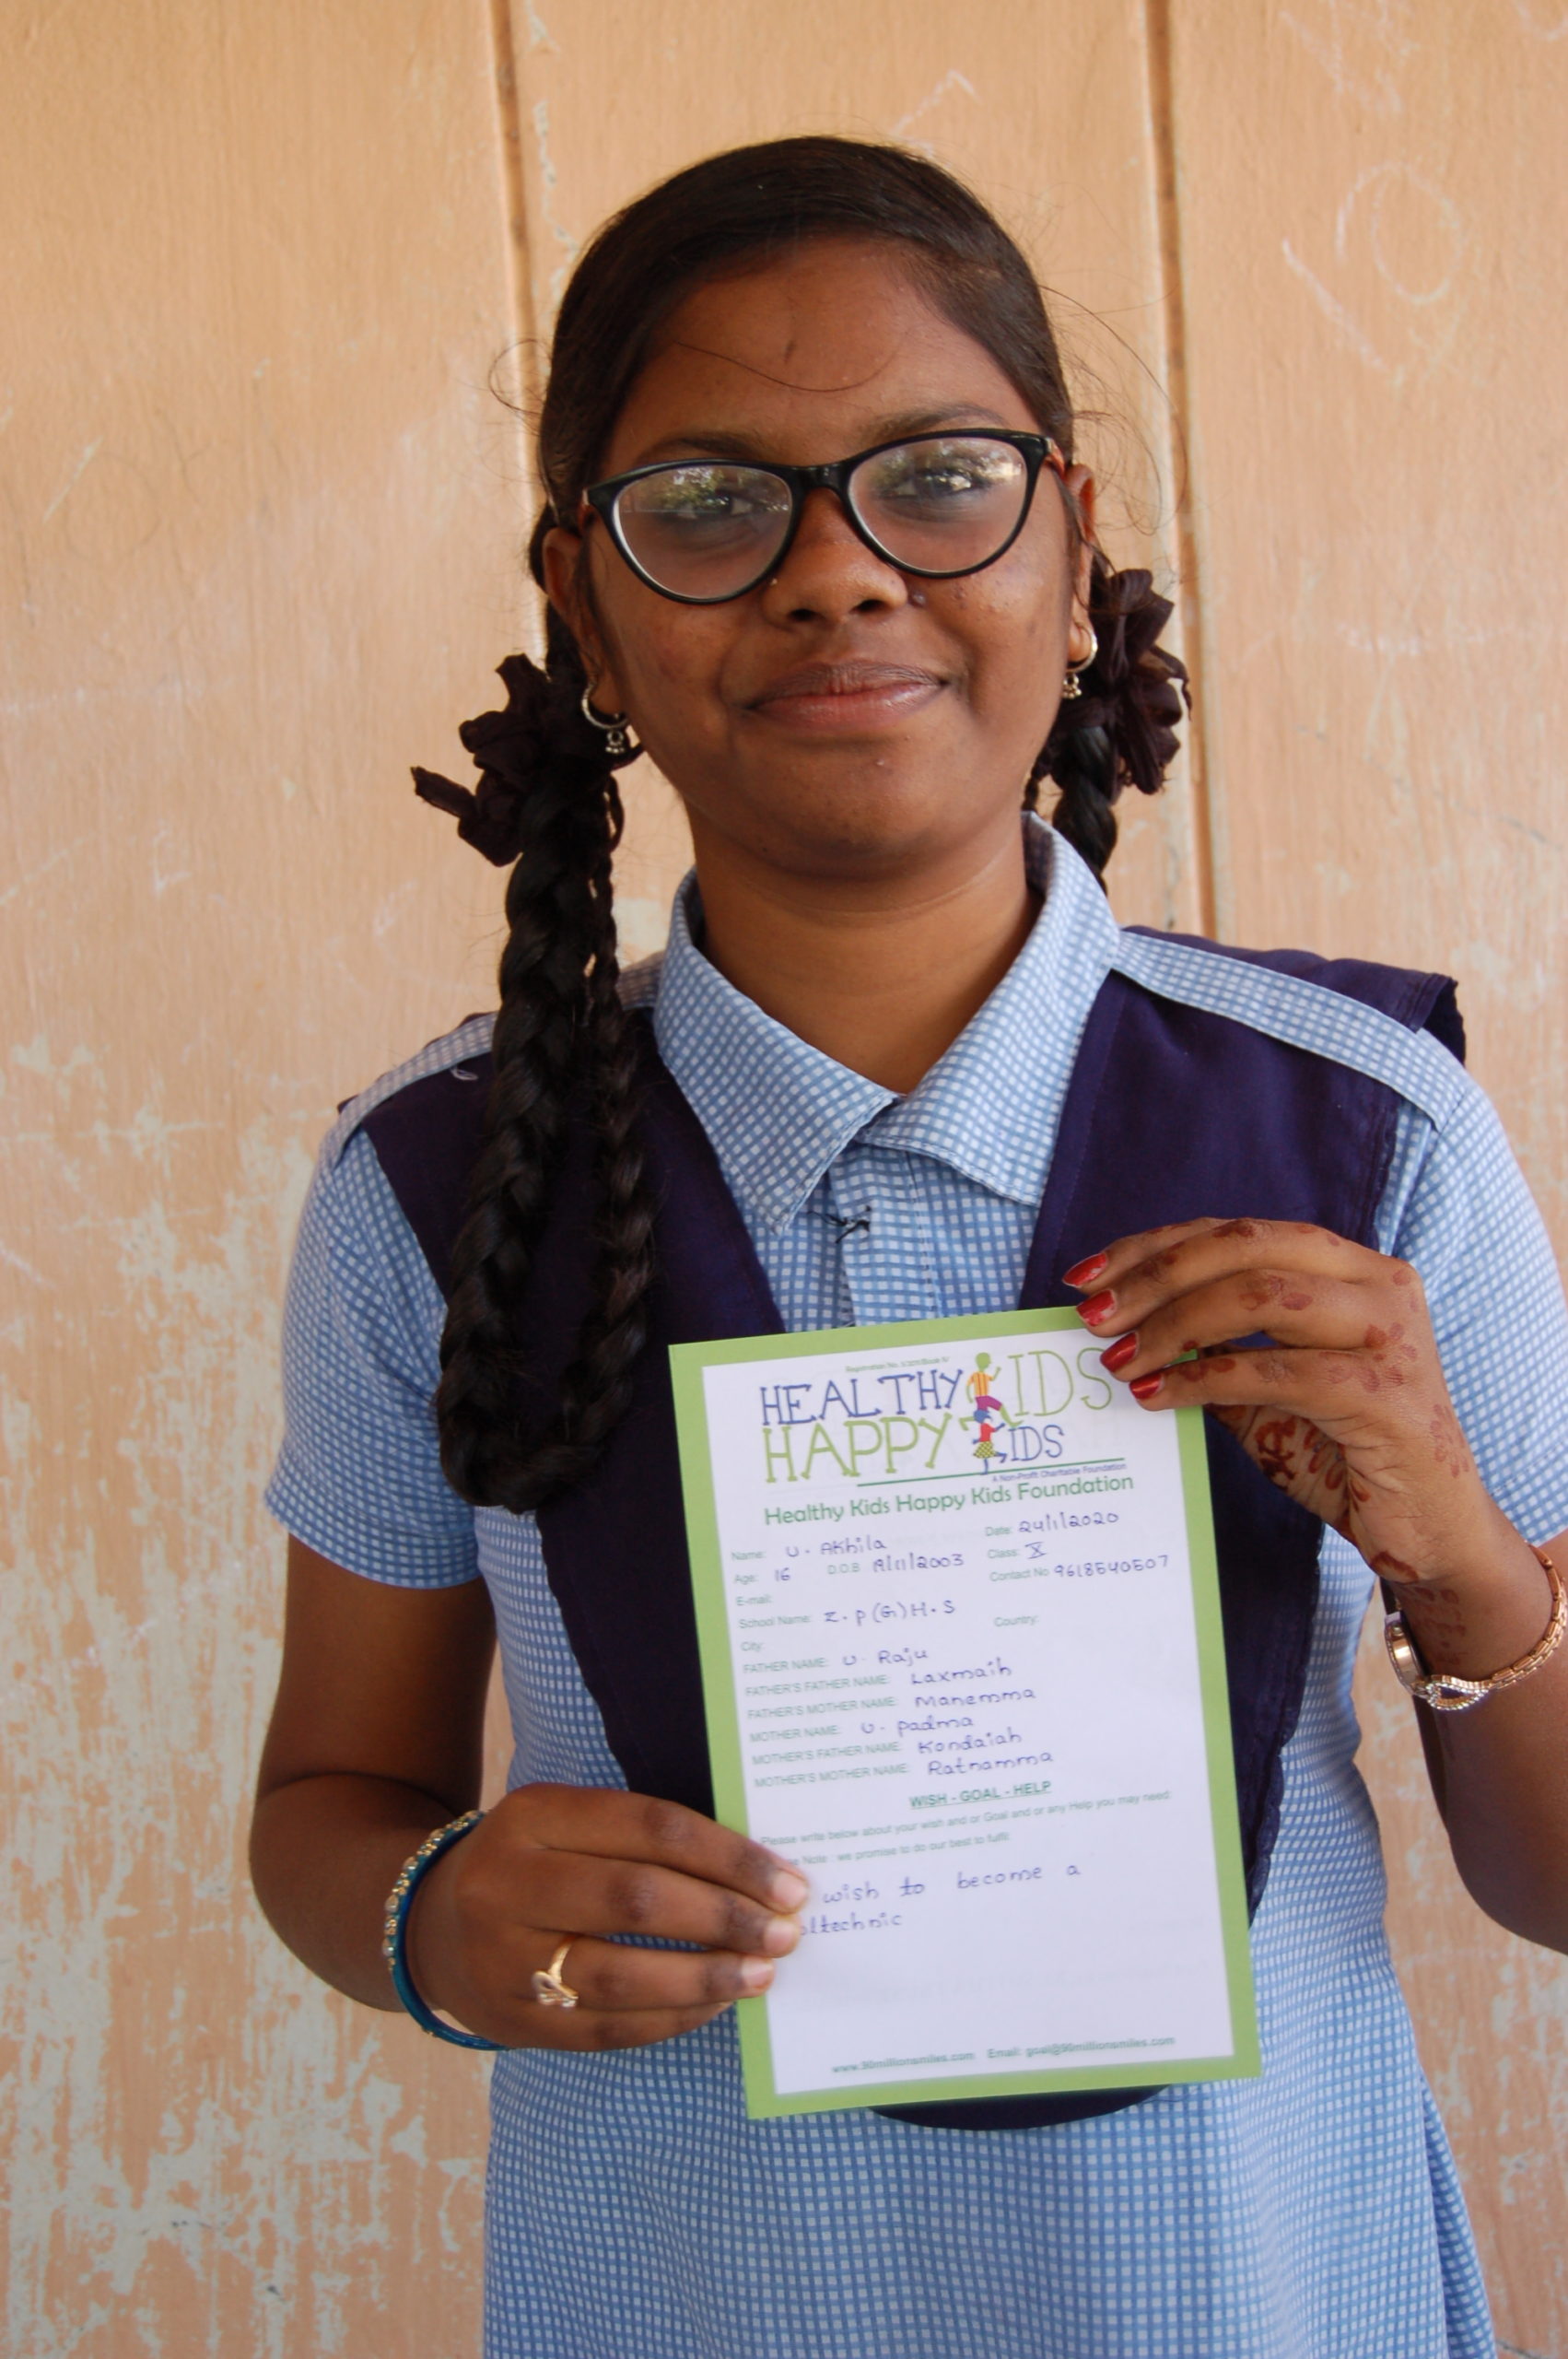 HEALTHY KIDS
HAPPY KIDS
A Non-Profit Charitable Foundation
Healthy Kids Happy Kids Foundation
Date: 24/1/2020
Name: U. Akhila
Age: 16 D.O.B 19/11/2003 Class: X
E-mail: Contact No 9618540507
School Name: Z.p(G)H.S
City: Country:
FATHER NAME: U. Raju
FATHER'S FATHER NAME: Laxmaih
FATHER'S MOTHER NAME: Manemma
MOTHER NAME: U. padma
MOTHER'S FATHER NAME: Kondaiah
MOTHER'S MOTHER NAME: Ratnamma
WISH - GOAL - HELP
Please write below about your wish and or Goal and or any Help you may need:
Note : we promise to do our best to fulfil
wish to become a
www.90millionsmiles.com Email: goal@90millionsmiles.com